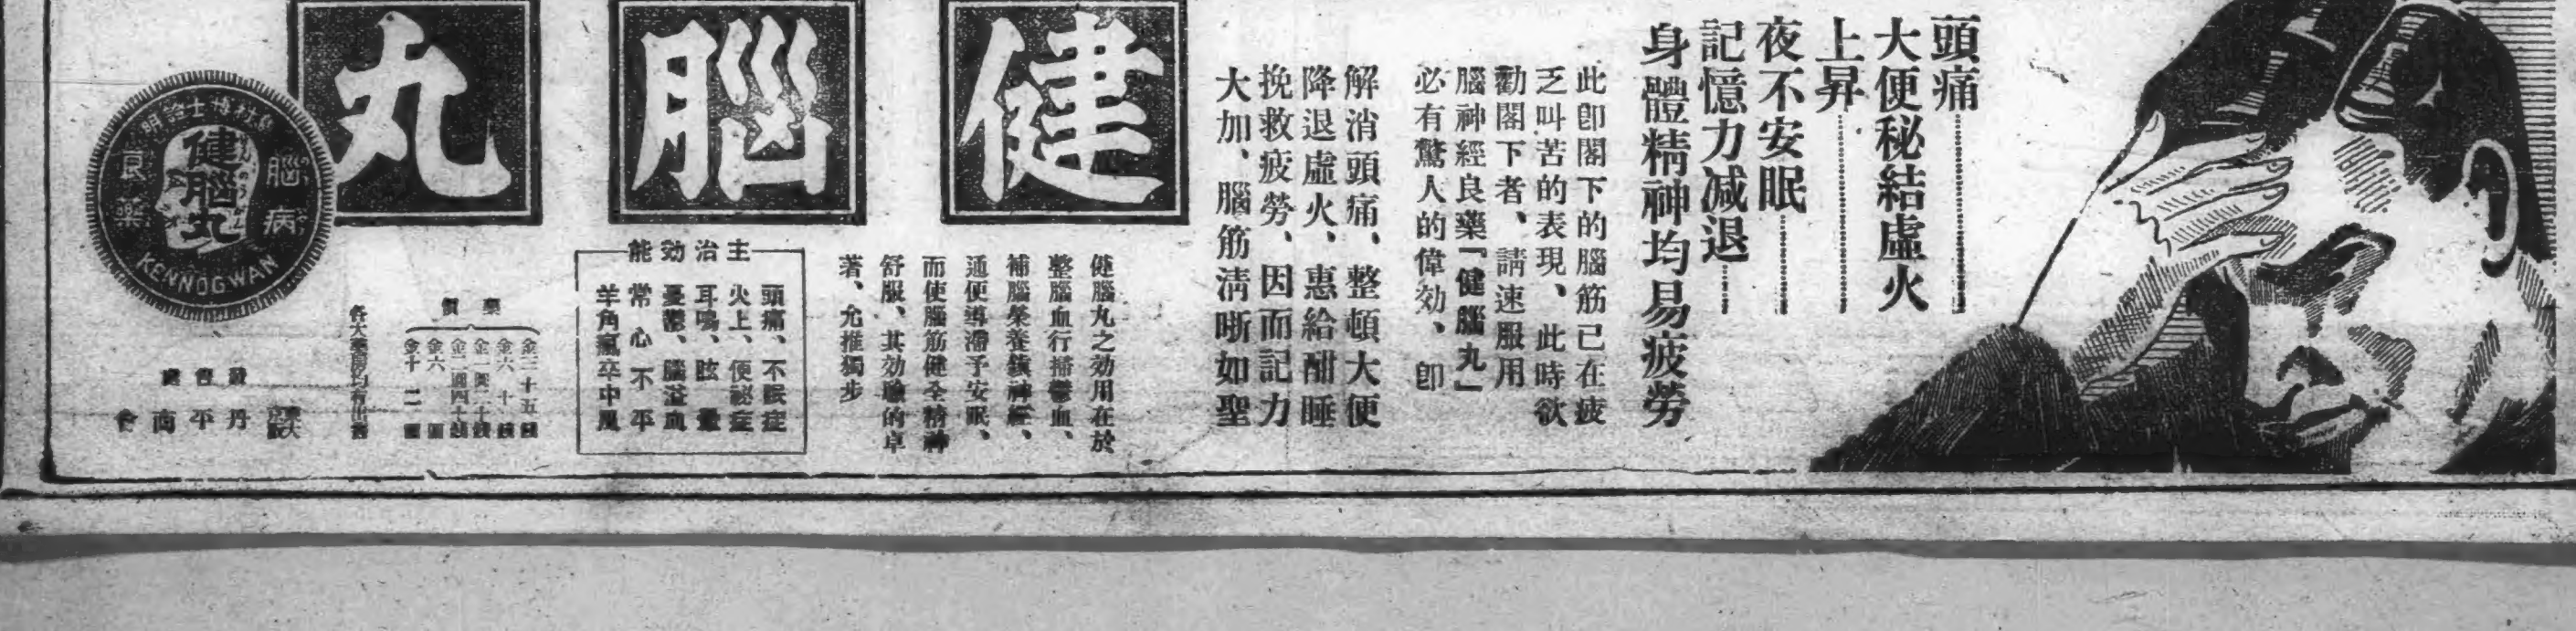 頭痛
大便秘結虛火
上昇
夜不安眠
記憶力減退
身體精神均易疲勞
此卽閣下的腦筋已在疲
乏叫苦的表現、此時欲
勸閣下者、請速服用
腦神經良藥「健腦丸」
必有驚人的偉効、卽
解消頭痛、整頓大便
降退虛火、惠給酣睡
挽救疲勞、因而記力
大加、腦筋淸晰如聖
健腦丸
健腦丸之効用在於
整腦血行掃鬱血、
補腦榮養鎮神經、
通便導滯予安眠、
而使腦筋健全精神
舒服、其効驗的卓
著、允推獨步
主治効能
頭痛、不眠症
火上、便祕症
耳鳴、眩暈
憂鬱、腦溢血
常心不平
羊角瘋卒中風
藥價
金三十五錢
金六十錢
金一圓二十錢
金二圓四十錢
金六圓
金十二圓
各大藥房均有出售
丹平商會
博士證明
腦病
良藥
健腦丸
KENNOGWAN